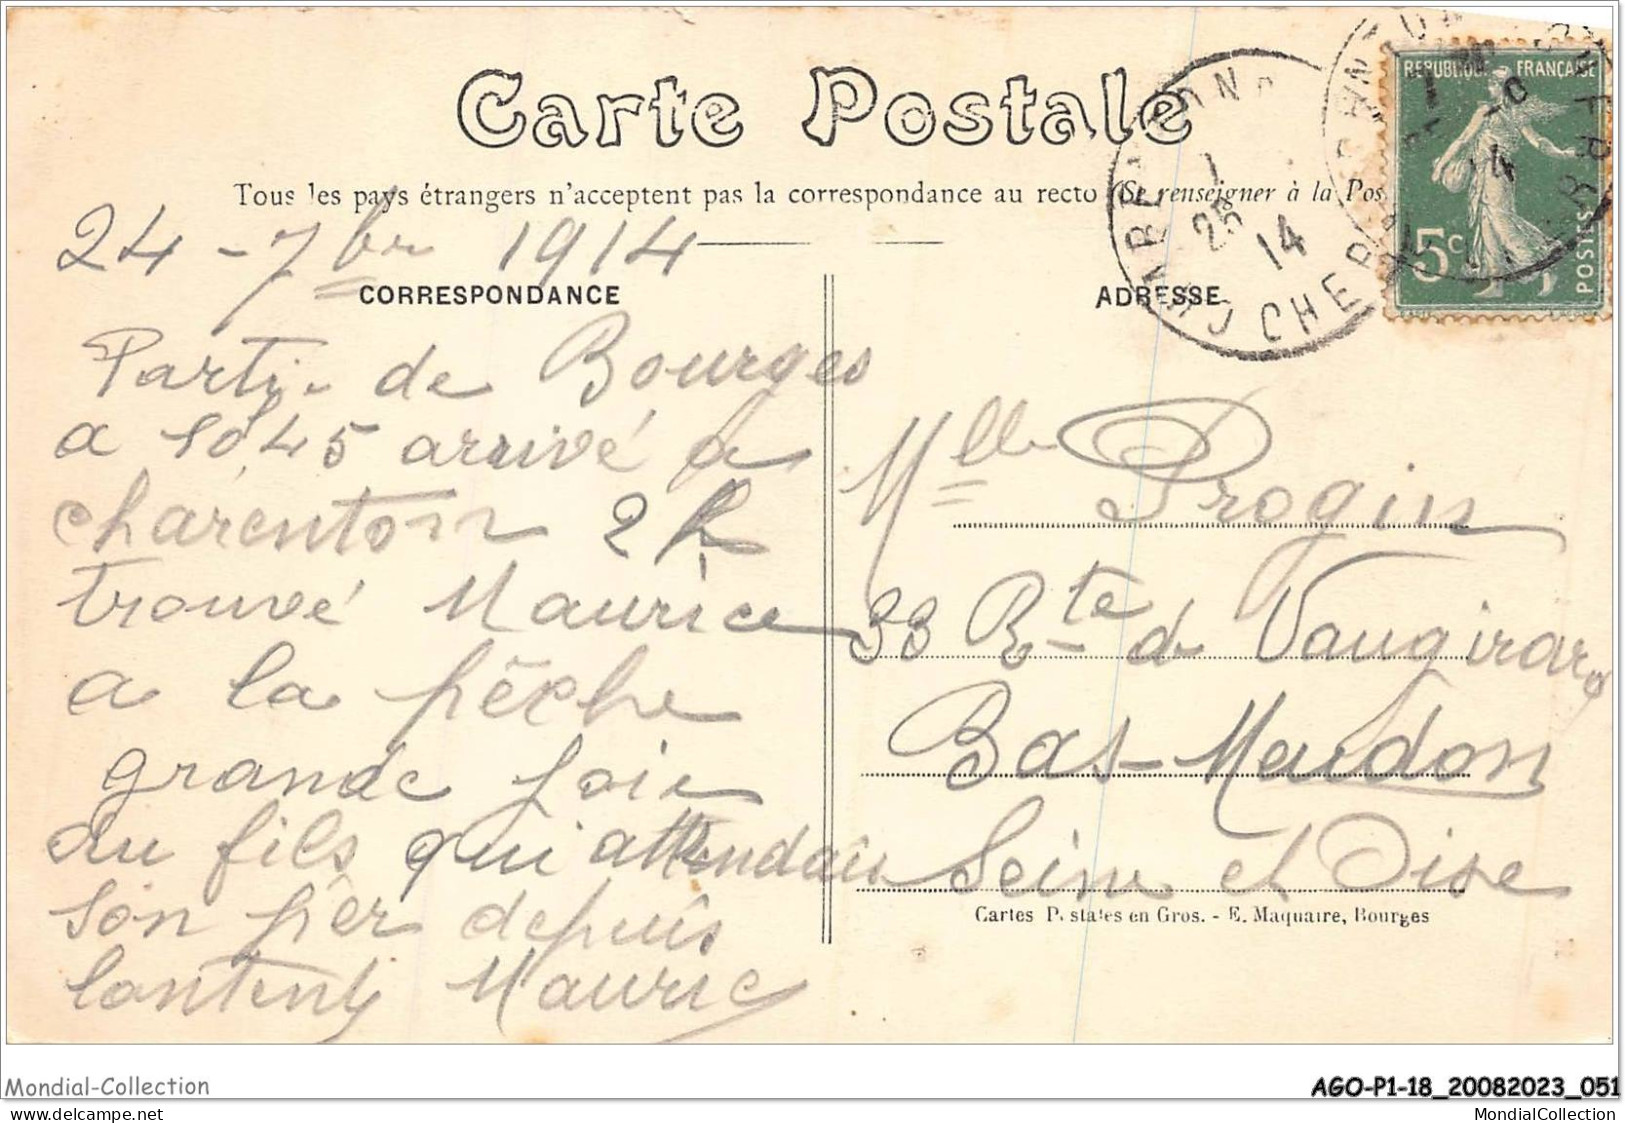 Carte Postale
Tous les pays étrangers n'acceptent pas la correspondance au recto (Se renseigner à la Pos
24 - 7bre 1914
CORRESPONDANCE
Parti de Bourges
a 10 45 arrivé a
charenton 2 h
trouvé Maurice
a la pêche
grande joie
du fils qui attendais
son pèr depuis
lontent Mauric
ADRESSE
Mlle Progin
33 Rte de Vaugirard
Bas-Meudon
Seine et Oise
Cartes Postales en Gros. - E. Maquaire, Bourges
REPUBLIQUE FRANÇAISE
5c
POSTES
25
14
CHER
Mondial-Collection
AGO-P1-18_20082023_051
delcampe.net
MondialCollection